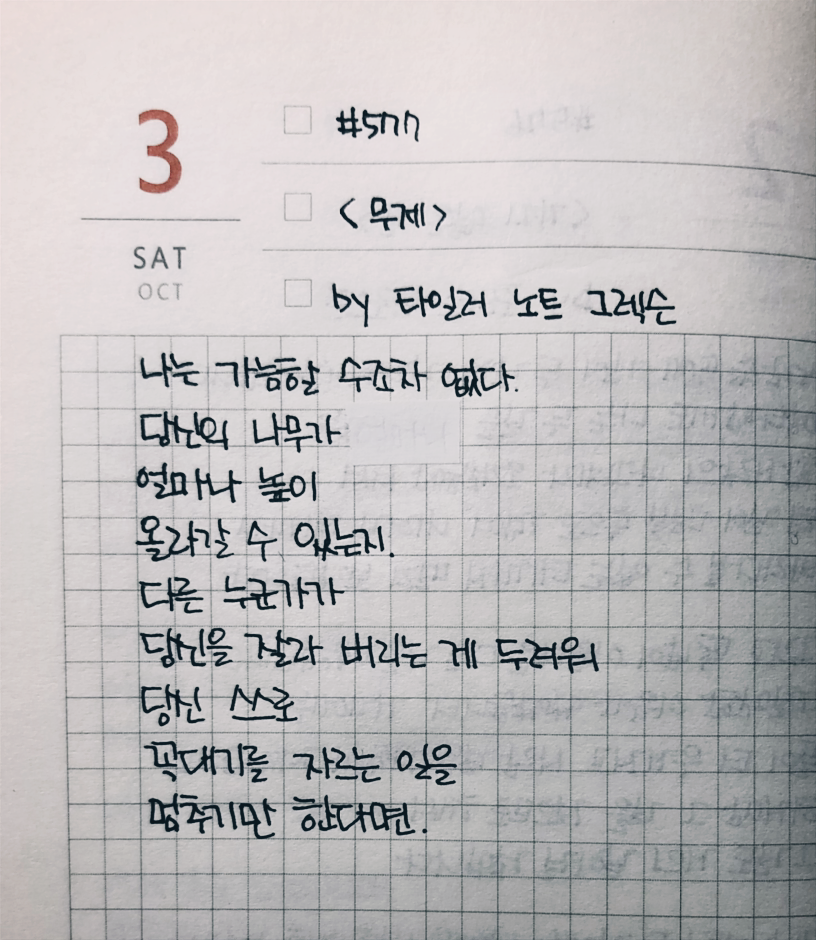 3
SAT
OCT
#577
<무제>
by 타일러 노트 그렉슨
나는 가늠할 수조차 없다.
당신의 나무가
얼마나 높이
올라갈 수 있는지.
다른 누군가가
당신을 잘라 버리는 게 두려워
당신 쓰로
꼭대기를 자르는 일을
멈추기만 한다면.